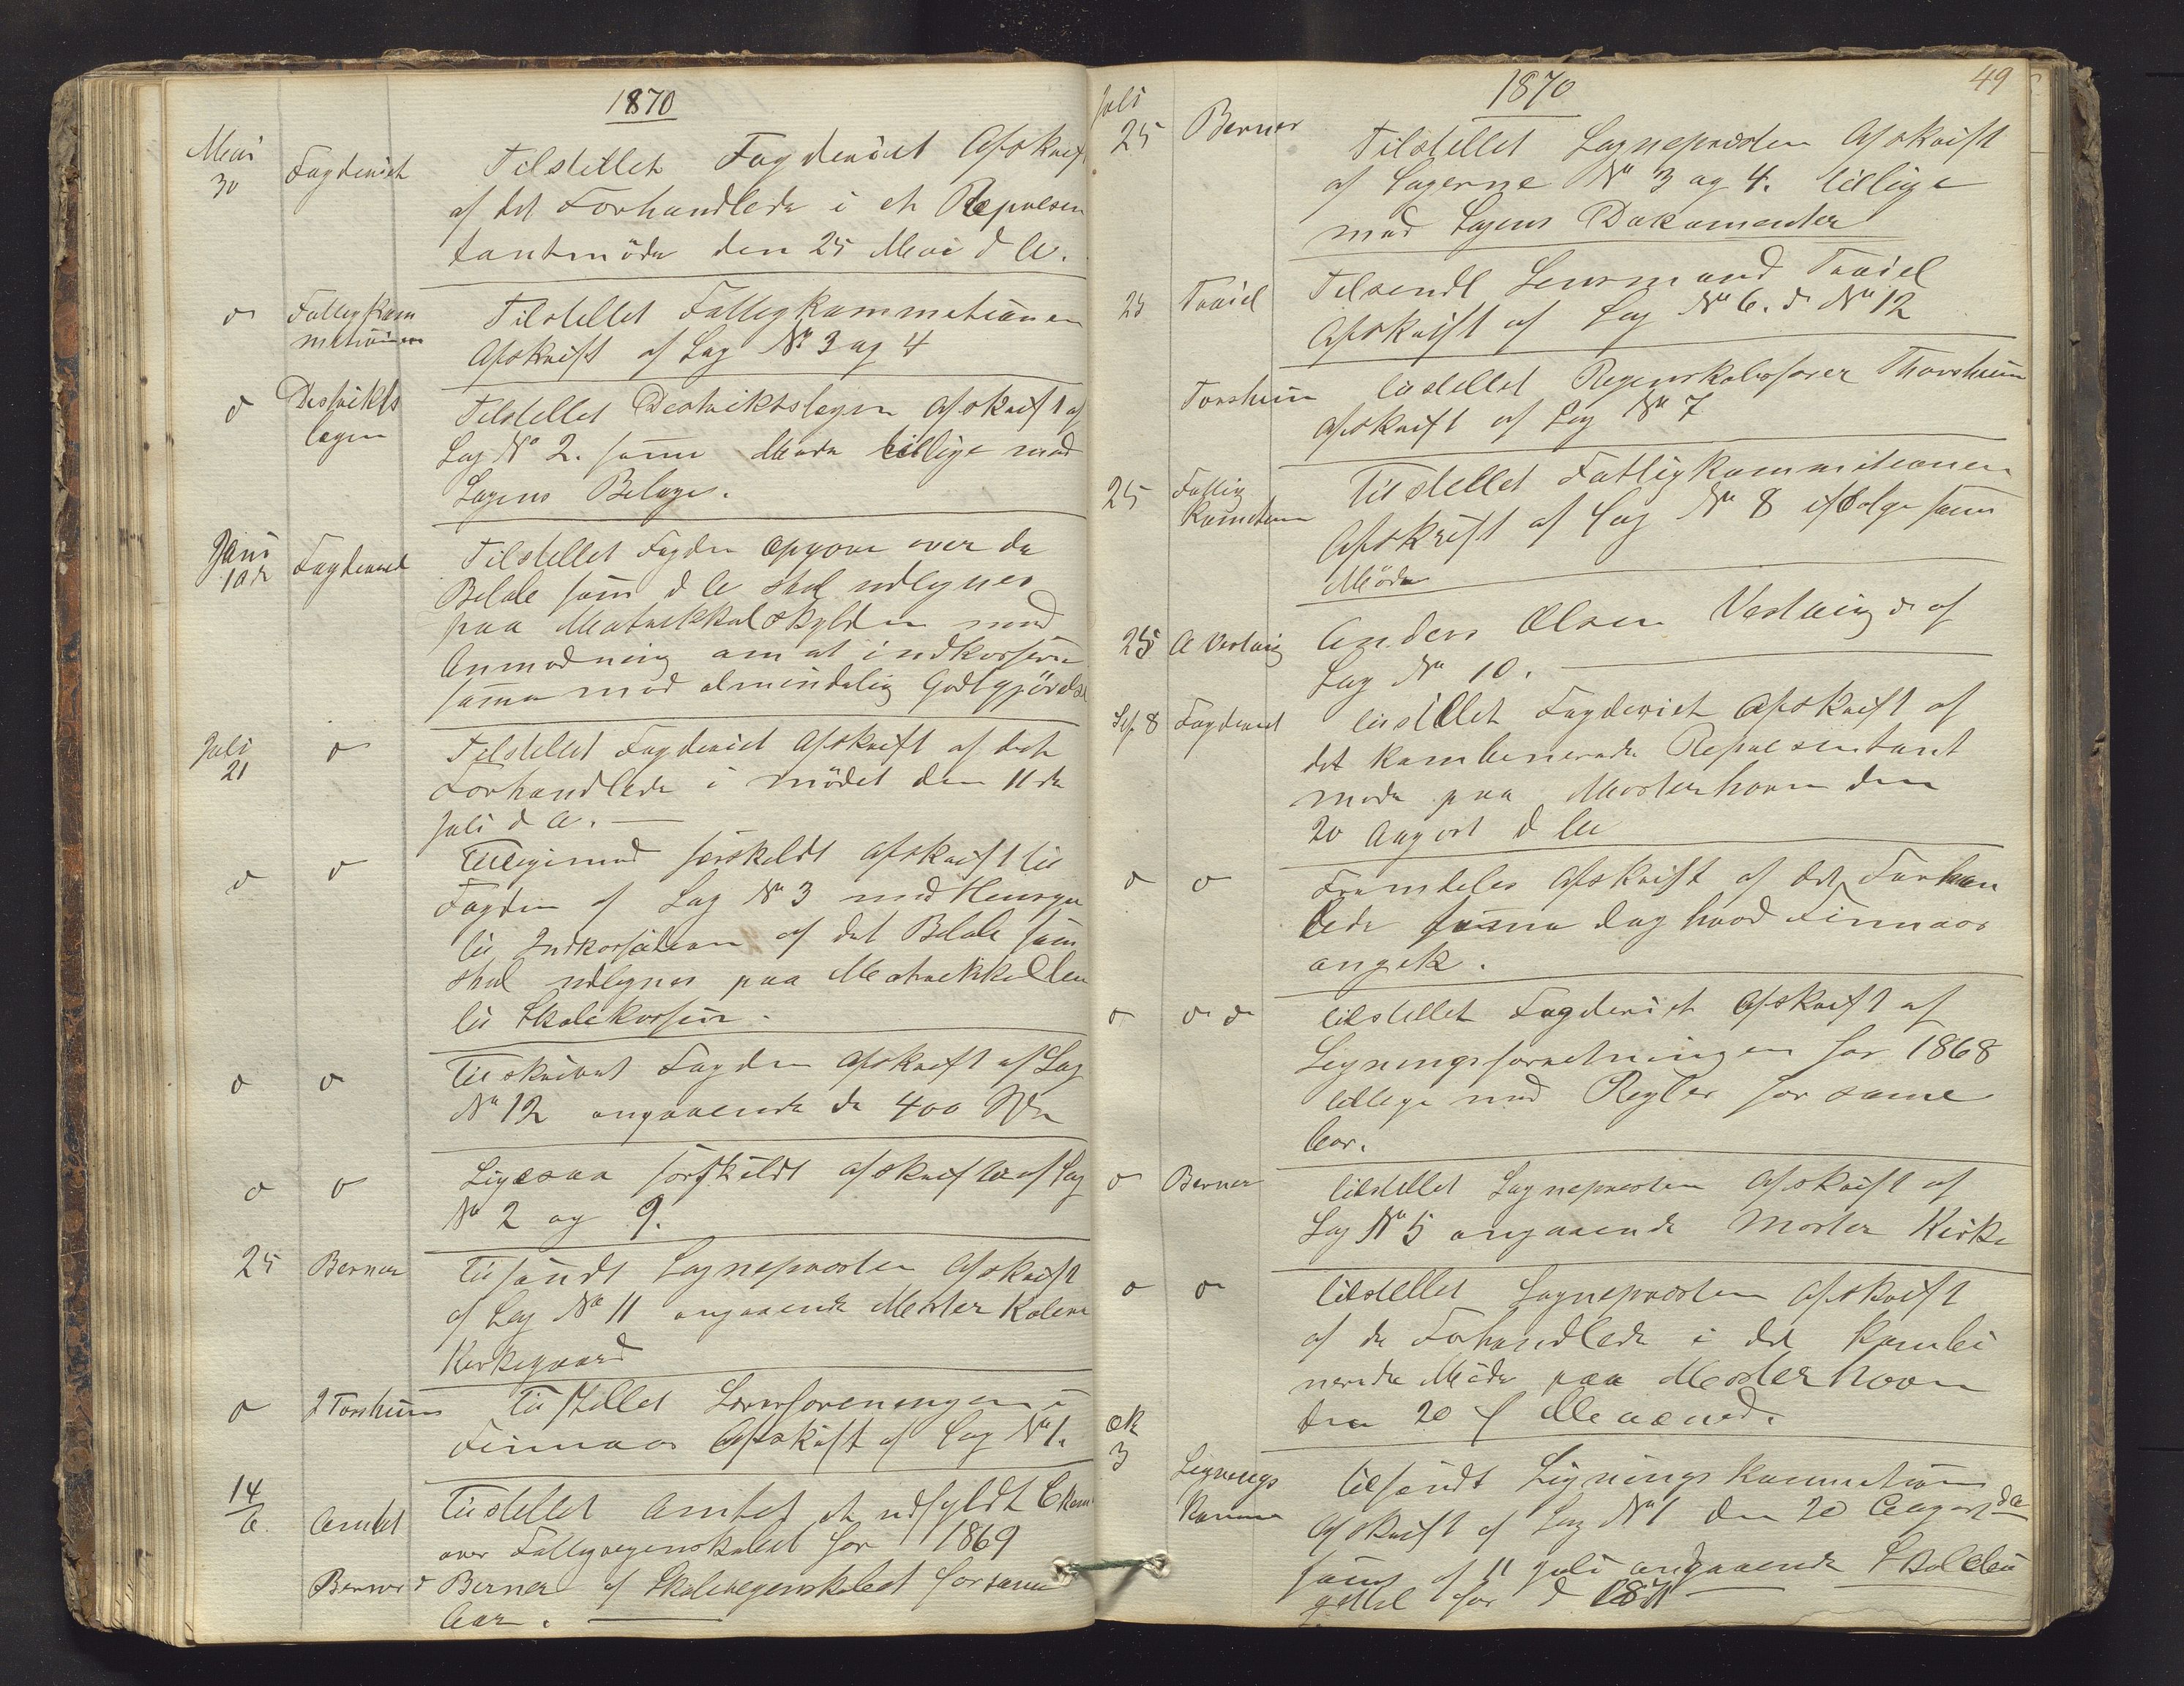 1870
Mai
30
Fogderiet
Tilstillet Fogderiet Afskrift
af det Forhandlede i et Repræsen
tantmöde den 25 Mai d A.
do
Fattigkom
mitionen
Tilstillet Fattigkommitionen
Afskrift af Sag No 3 og 4
do
Destrikts
lægen
Tilstillet Destriktslægen Afskrift af
Sag No 2. samme Möde tillige med
Sagens Belage.
Juni
10de
Fogderiet
Tilstillet Fogden Opgave over de
Belöb som d A skal udlignes
paa Matrikkulskylden med
Anmodning om at indkassere
samme mod almindelig Godtgjörelse
Juli
21
do
Tilstillet Fogderiet Afskrift af det
Forhandlede i mödet den 11de
Juli d A.
do
do
Tilligemed særskildt Afskrift til
Fogden af Sag No 3 med Hensyn
til Indkassation af det Belöb som
skal udlignes paa Matrikkullen
til Skolekassen.
do
do
Tilskrivet Fogden Afskrift af Sag
No 12 angaaende de 400 Spd
do
do
Ligesaa særskildt Afskrift af Sag
No 2 og 9.
25
Berner
Tilsendt Sognepresten Afskrift
af Sag No 11 angaaende Moster Kolera
Kirkegaard
do
J Torsheim
Tilstillet Låneforeningen i
Finnaas Afskrift af Sag No 1.
14/6
Amtet
Tilstillet Amtet et udfyldt Skema
over Fattigregenskabet for 1869
Berner
Berner af Skoleregenskabet for samme
Aar.
49
1870
Juli
25
Berner
Tilstillet Sognepresten Afskrift
af Sagerne No 3 og 4. tillige
med Sagens Dokumenter
25
Tveid
Tilsendt Lensmand Tveid
Afskrift af Sag No 6. do No 12
Torsheim
tilstillet Regenskabsförer Thorsheim
Afskrift af Sag No 7
25
Fattig
Kometionen
Tilstillet Fattigkommitionen
Afskrift af Sag No 8 ifölge samme
Möde
25
A Vestvig
Anders Olsen Vestvig do af
Sag No 10.
Sep 8
Fogderiet
tilstillet Fogderiet Afskrift af
det kombenerede Repræsentant
möde paa Mosterhavn den
20 August d Aa
do
do
Fremdeles Afskrift af det Forhan
lede samme Dag hvad Finnaas
angik.
do
do do
tilstillet Fogderiet Afskrift af
Legningsforretningen for 1868
tillige med Regler for same
Aar.
do
Berner
tilstillet Sognepresten Afskrift af
Sag No 5 angaaende Moster Kirke
do
do
tilstillet Sognepresten Afskrift
af de Forhandlede i det Kombi
nerede Möde paa Mosterhavn
den 20 f Maaned.
Ok
3
Legnings
Komm
tilsendt Ligningskommetionen
Afskrift af Sag No 1 den 20 August da
samt af 11 Juli angaaende Skolebu
gettet for d 1871